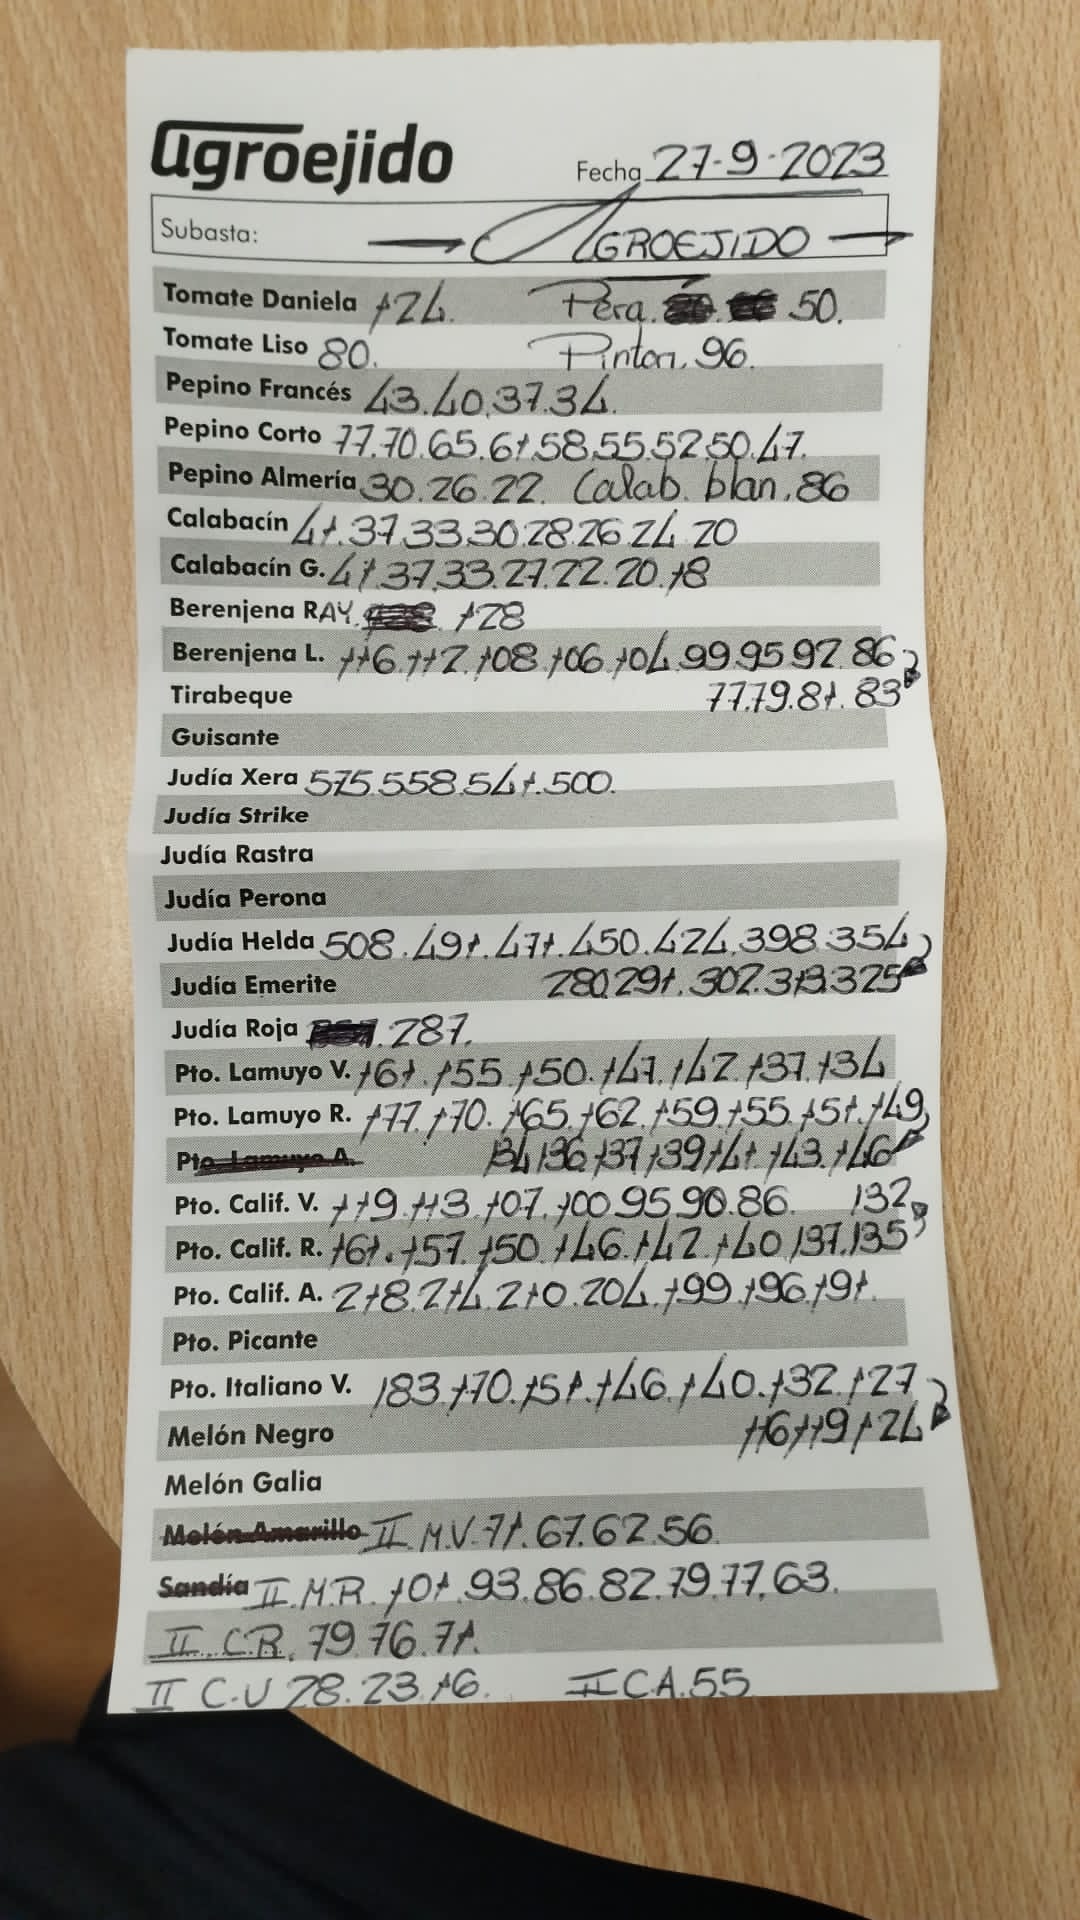 agroejido Fecha 27-9-2023
Subasta: AGROEJIDO
Tomate Daniela 124. Pera. 50.
Tomate Liso 80. Pinton. 96.
Pepino Francés 43.40.37.34.
Pepino Corto 77.70.65.61.58.55.52.50.47.
Pepino Almería 30.26.22. Calab. blan. 86
Calabacín 41.37.33.30.28.26.24.20
Calabacín G. 41.37.33.27.22.20.18
Berenjena RAY. 128
Berenjena L. 116.112.108.106.104.99.95.92.86
Tirabeque 77.79.81.83
Guisante
Judía Xera 575.558.541.500.
Judía Strike
Judía Rastra
Judía Perona
Judía Helda 508.491.471.450.424.398.354
Judía Emerite 280.291.302.313.325
Judía Roja 287.
Pto. Lamuyo V. 161.155.150.147.142.137.134
Pto. Lamuyo R. 177.170.165.162.159.155.151.149
Pto. Lamuyo A. 134.136.137.139.141.143.146
Pto. Calif. V. 119.113.107.100.95.90.86. 132
Pto. Calif. R. 161.157.150.146.142.140.137.135
Pto. Calif. A. 218.214.210.204.199.196.191.
Pto. Picante
Pto. Italiano V. 183.170.151.146.140.132.127
Melón Negro 116.119.124
Melón Galia
Melón Amarillo II M.V. 71.67.62.56.
Sandía II.M.R. 101.93.86.82.79.77.63.
II C.R. 79.76.71.
II C.V 28.23.16. II C.A. 55